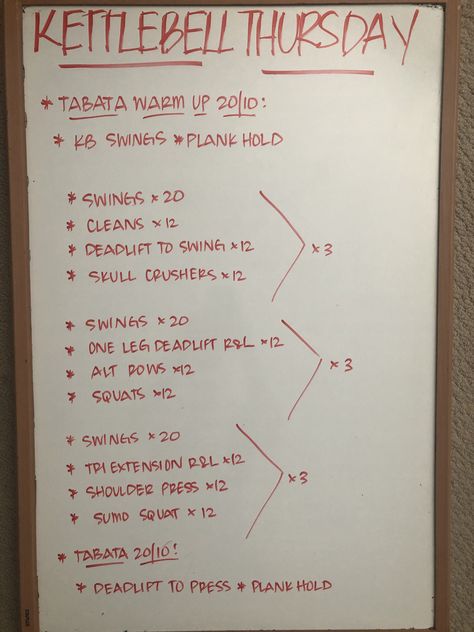 KETTLEBELL THURSDAY
* TABATA WARM UP 20/10:
* KB SWINGS * PLANK HOLD
* SWINGS x 20
* CLEANS x 12
* DEADLIFT TO SWING x 12
* SKULL CRUSHERS x 12
x 3
* SWINGS x 20
* ONE LEG DEADLIFT R&L x 12
* ALT ROWS x 12
* SQUATS x 12
x 3
* SWINGS x 20
* TRI EXTENSION R&L x 12
* SHOULDER PRESS x 12
* SUMO SQUAT x 12
x 3
* TABATA 20/10:
* DEADLIFT TO PRESS * PLANK HOLD